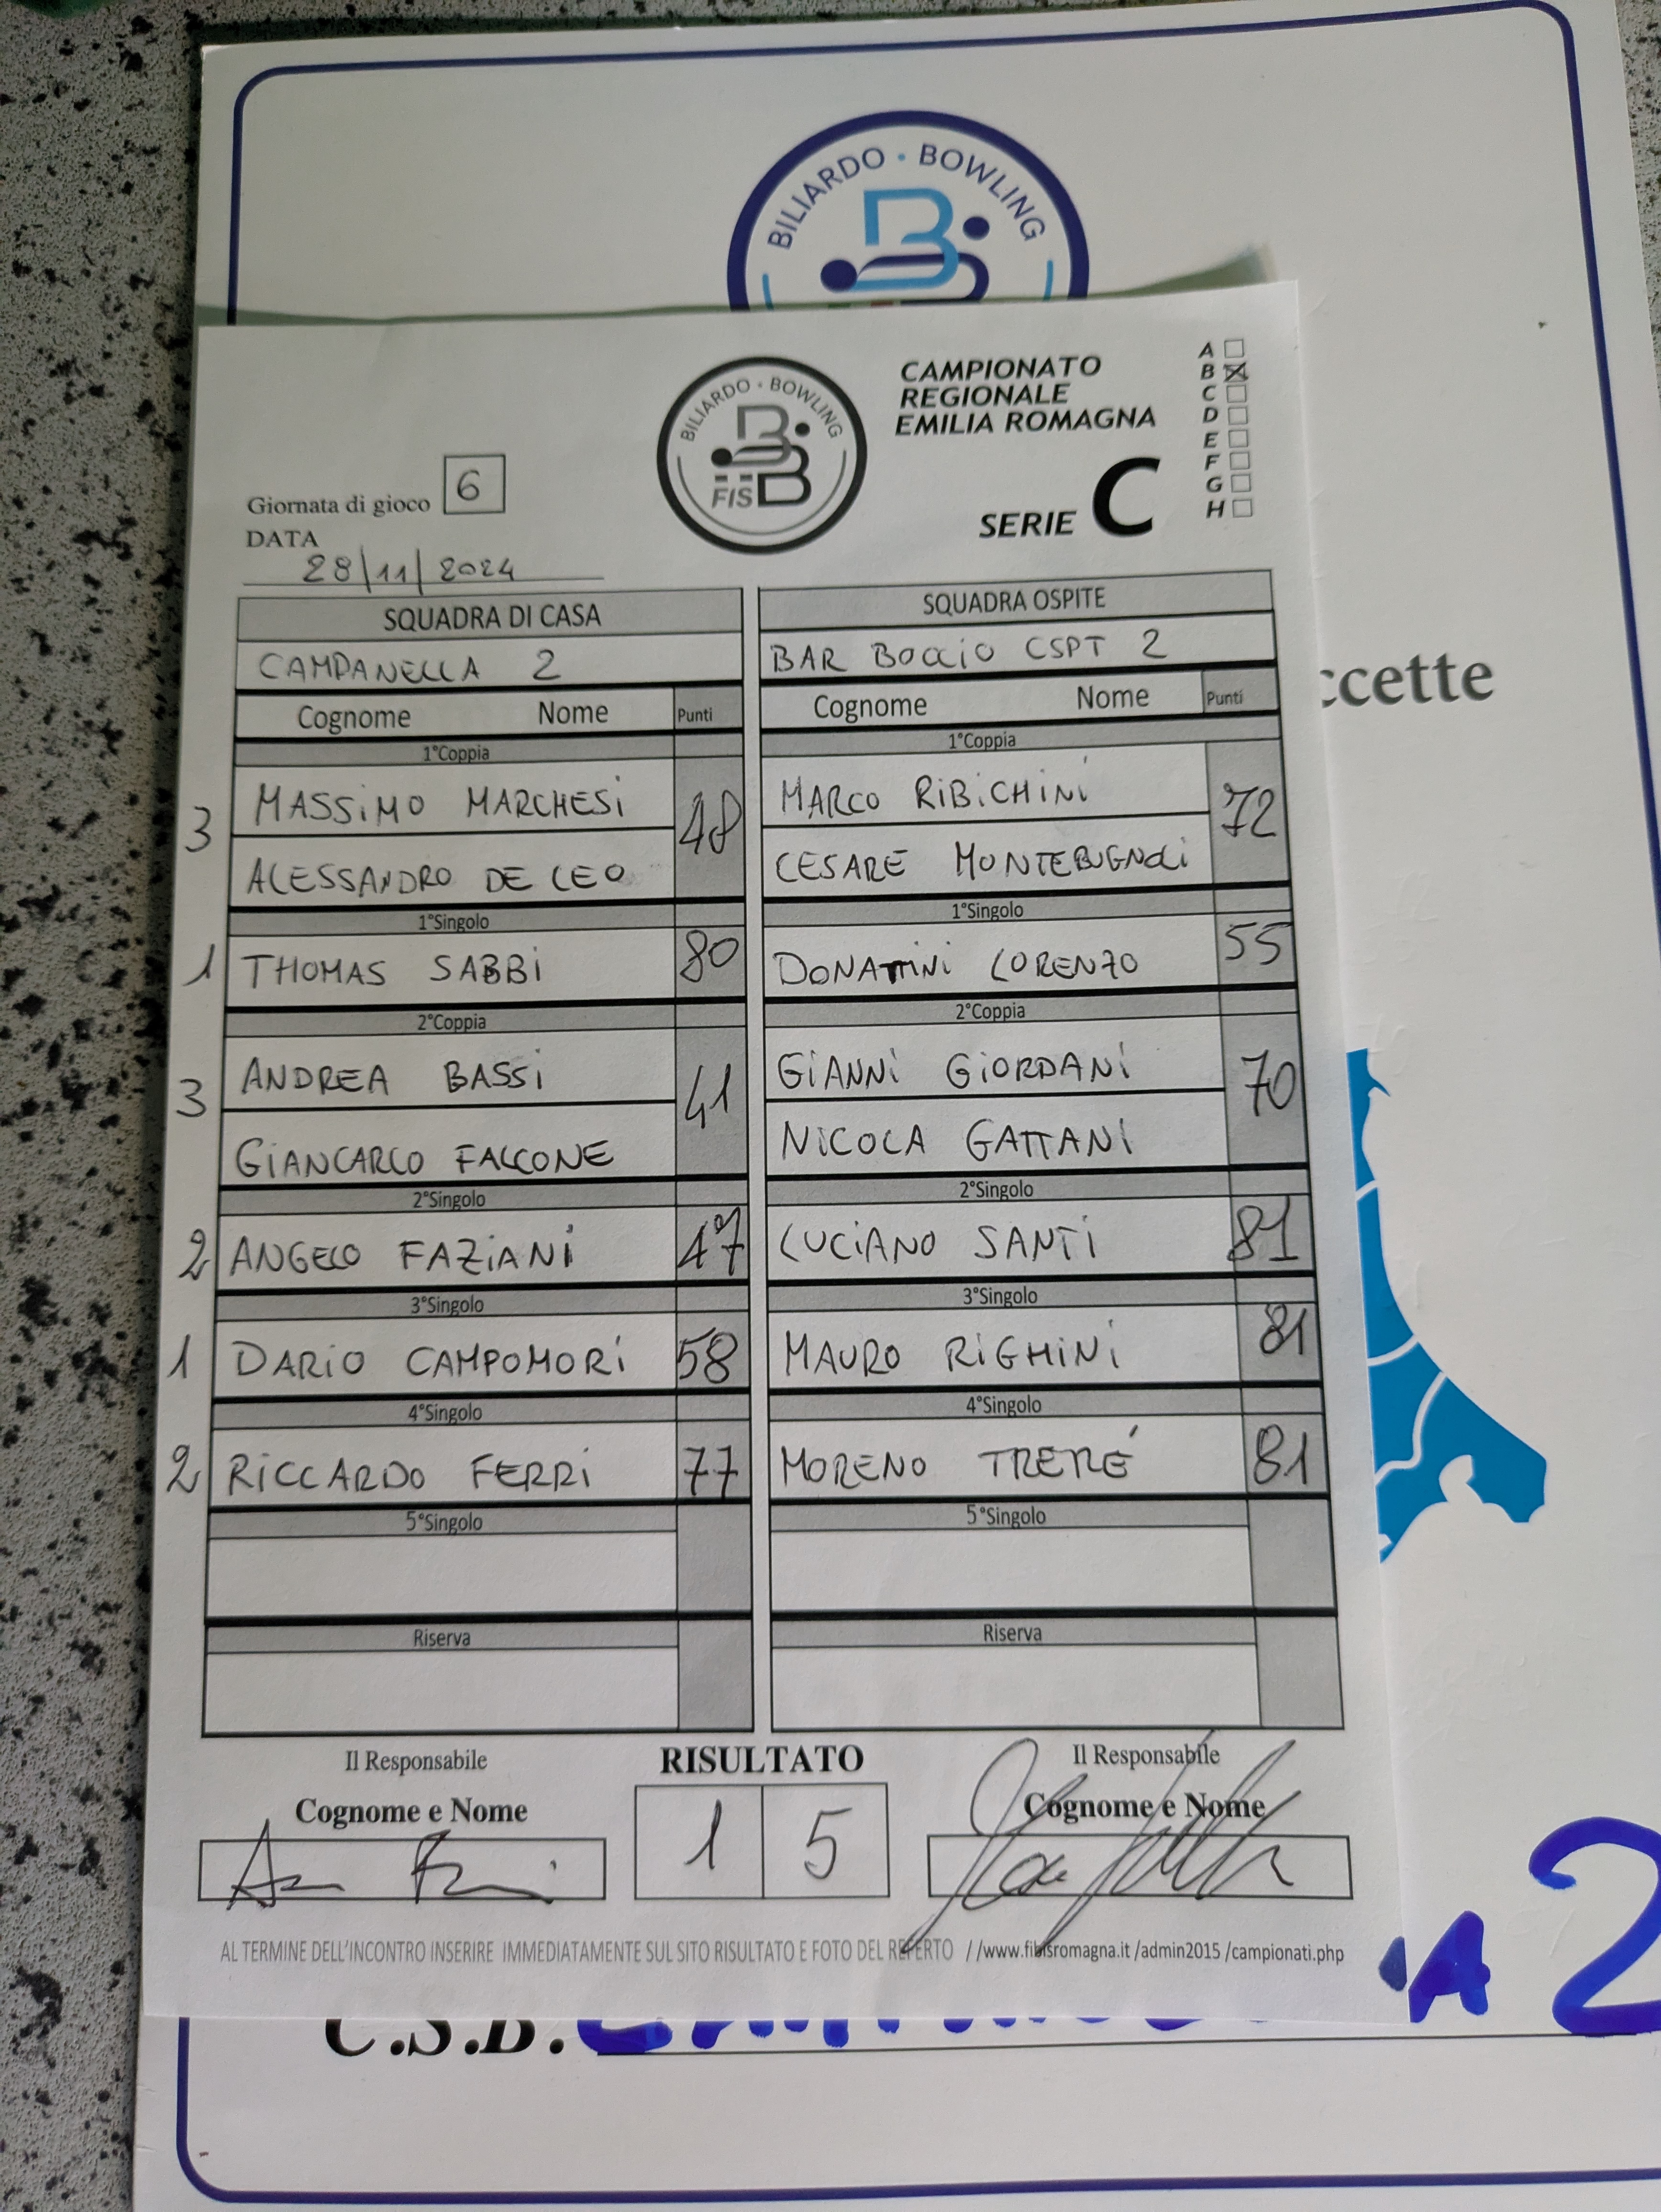 BILIARDO · BOWLING
ccette
BILIARDO · BOWLING
FISBB
CAMPIONATO
REGIONALE
EMILIA ROMAGNA
SERIE C
A
B X
C
D
E
F
G
H
Giornata di gioco 6
DATA
28/11/2024
SQUADRA DI CASA
CAMPANELLA 2
Cognome Nome Punti
1°Coppia
3 MASSIMO MARCHESI 48
ALESSANDRO DE LEO
1°Singolo
1 THOMAS SABBI 80
2°Coppia
3 ANDREA BASSI 41
GIANCARLO FALCONE
2°Singolo
2 ANGELO FAZIANI 47
3°Singolo
1 DARIO CAMPOMORI 58
4°Singolo
2 RICCARDO FERRI 77
5°Singolo
Riserva
SQUADRA OSPITE
BAR BOCCIO CSPT 2
Cognome Nome Punti
1°Coppia
MARCO RIBICHINI 72
CESARE MONTEBUGNOLI
1°Singolo
DONATTINI LORENZO 55
2°Coppia
GIANNI GIORDANI 70
NICOLA GATTANI
2°Singolo
LUCIANO SANTI 81
3°Singolo
MAURO RIGHINI 81
4°Singolo
MORENO TRERÉ 81
5°Singolo
Riserva
Il Responsabile
Cognome e Nome
RISULTATO
1 5
Il Responsabile
Cognome e Nome
AL TERMINE DELL'INCONTRO INSERIRE IMMEDIATAMENTE SUL SITO RISULTATO E FOTO DEL REFERTO //www.fibisromagna.it /admin2015 /campionati.php
C.S.B. A 2